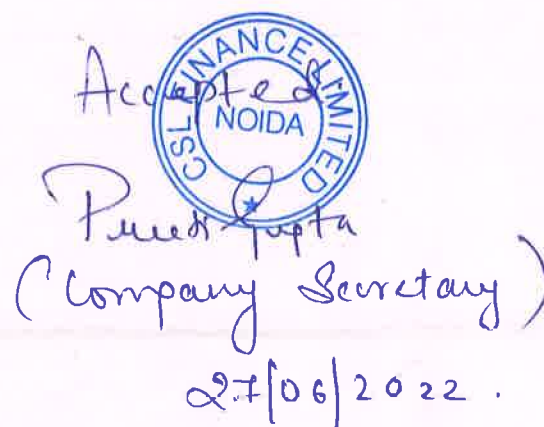 Accepted
CSL FINANCE LIMITED
NOIDA
Gupta
(Company Secretary)
27/06/2022.